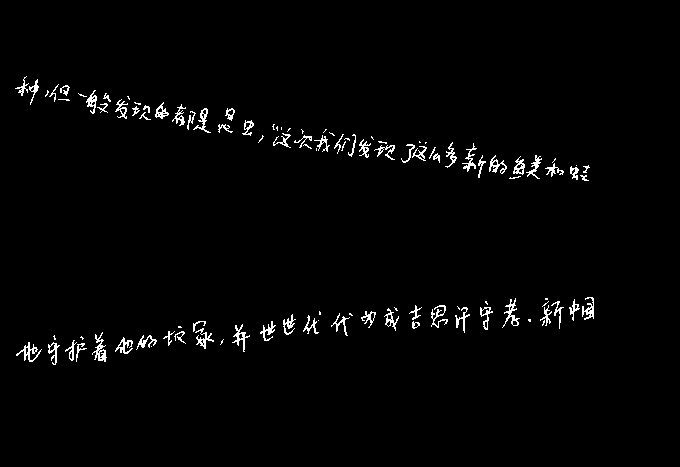 种,但一般发现的都是昆虫,“这次我们发现了这么多新的鱼类和蛙
地守护着他的坟冢,并世世代代为成吉思汗守孝.新中国